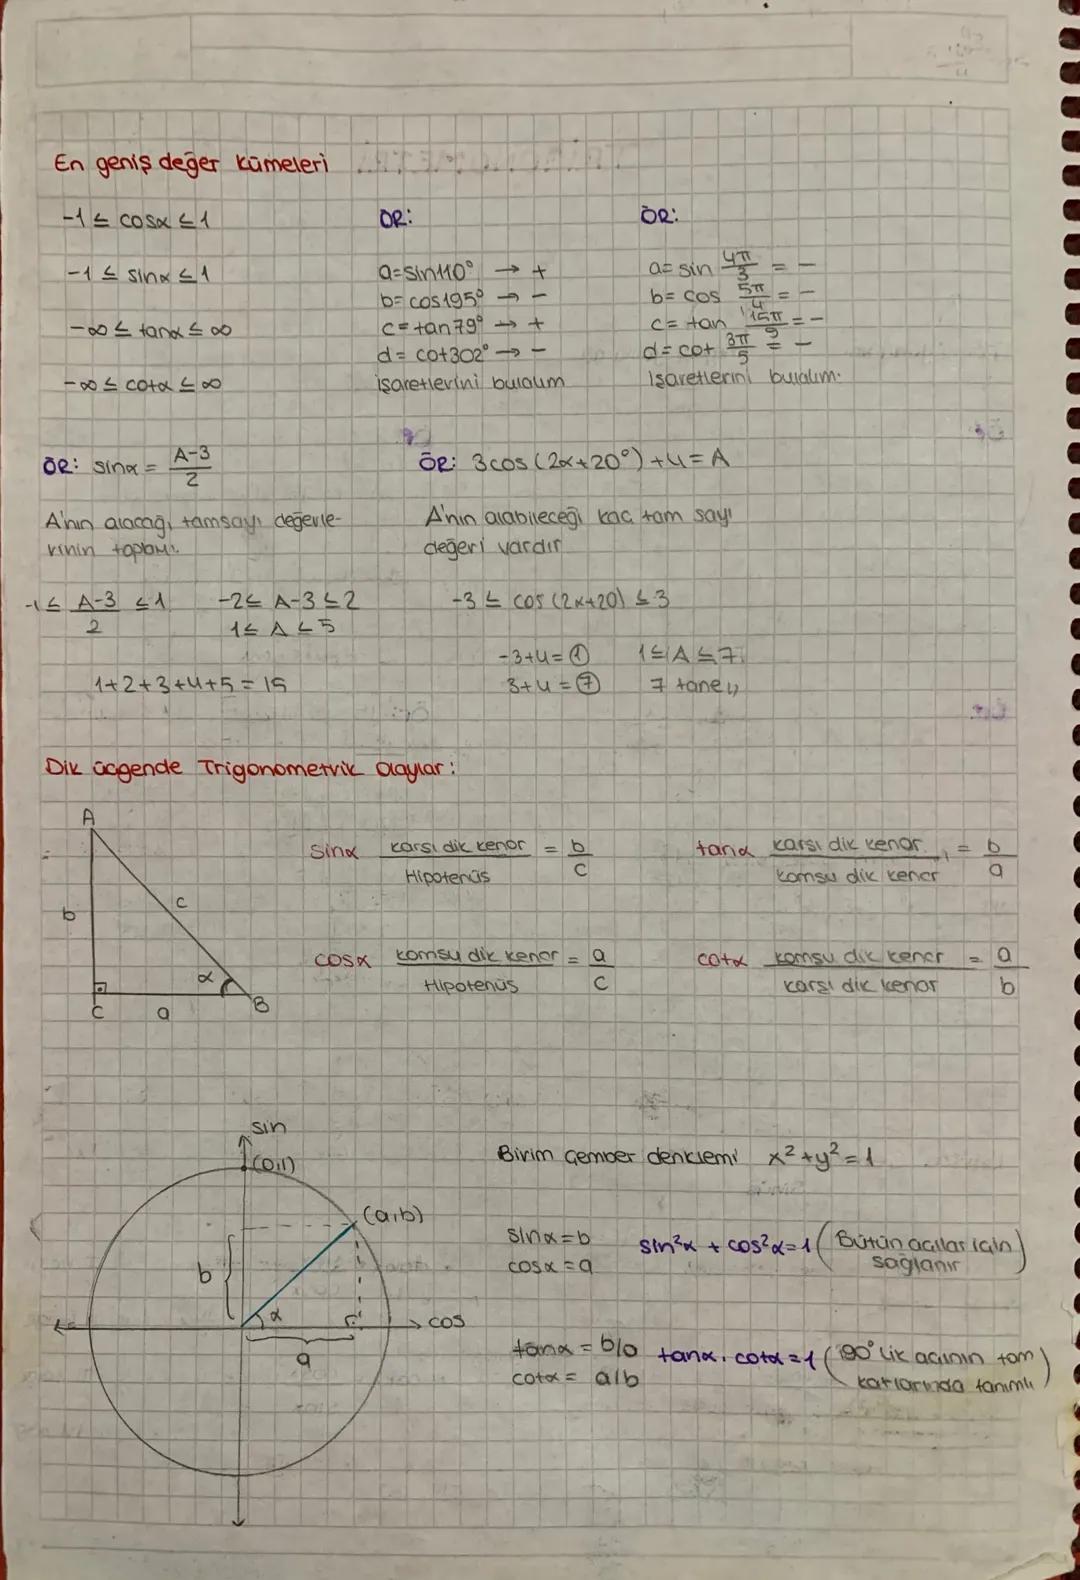 En geniş değer kümeleri
-1 ≤ cosα ≤ 1
-1 ≤ sinα ≤ 1
-∞ ≤ tanα ≤ ∞
-∞ ≤ cotα ≤ ∞
ÖR:
a=sin110° → +
b=cos195° → -
c=tan79° → +
d=cot302° → -
işaretlerini bulalım
ÖR:
a= sin 4π/3 = -
b= cos 5π/4 = -
c= tan 15π/9 = -
d= cot 3π/5 = -
İşaretlerini bulalım.
ÖR: sinα = A-3/2
A'nın alacağı tamsayı değerle-
rinin toplamı.
-1 ≤ A-3/2 ≤ 1 -2 ≤ A-3 ≤ 2
1 ≤ A ≤ 5
1+2+3+4+5 = 15
ÖR: 3cos(2α+20°)+4=A
A'nın alabileceği kaç tam sayı
değeri vardır
-3 ≤ cos(2x+20) ≤ 3
-3+4=1 1 ≤ A ≤ 7
3+4=7 7 tane,,
Dik üçgende Trigonometrik Olaylar:
A
b
c
α
C
a
B
sinα karşı dik kenar/Hipotenüs = b/c
tanα karşı dik kenar/komşu dik kenar = b/a
cosα komşu dik kenar/Hipotenüs = a/c
cotα komşu dik kenar/karşı dik kenar = a/b
sin
(0,1)
(a,b)
b
α
cos
a
Birim Çember denklemi x²+y²=1
sinα=b
cosα=a
sin²α + cos²α=1 (Bütün açılar için
sağlanır)
tanα = b/a
cotα = a/b
tanα.cotα=1 (90°lik açının tam
katlarında tanımlı)